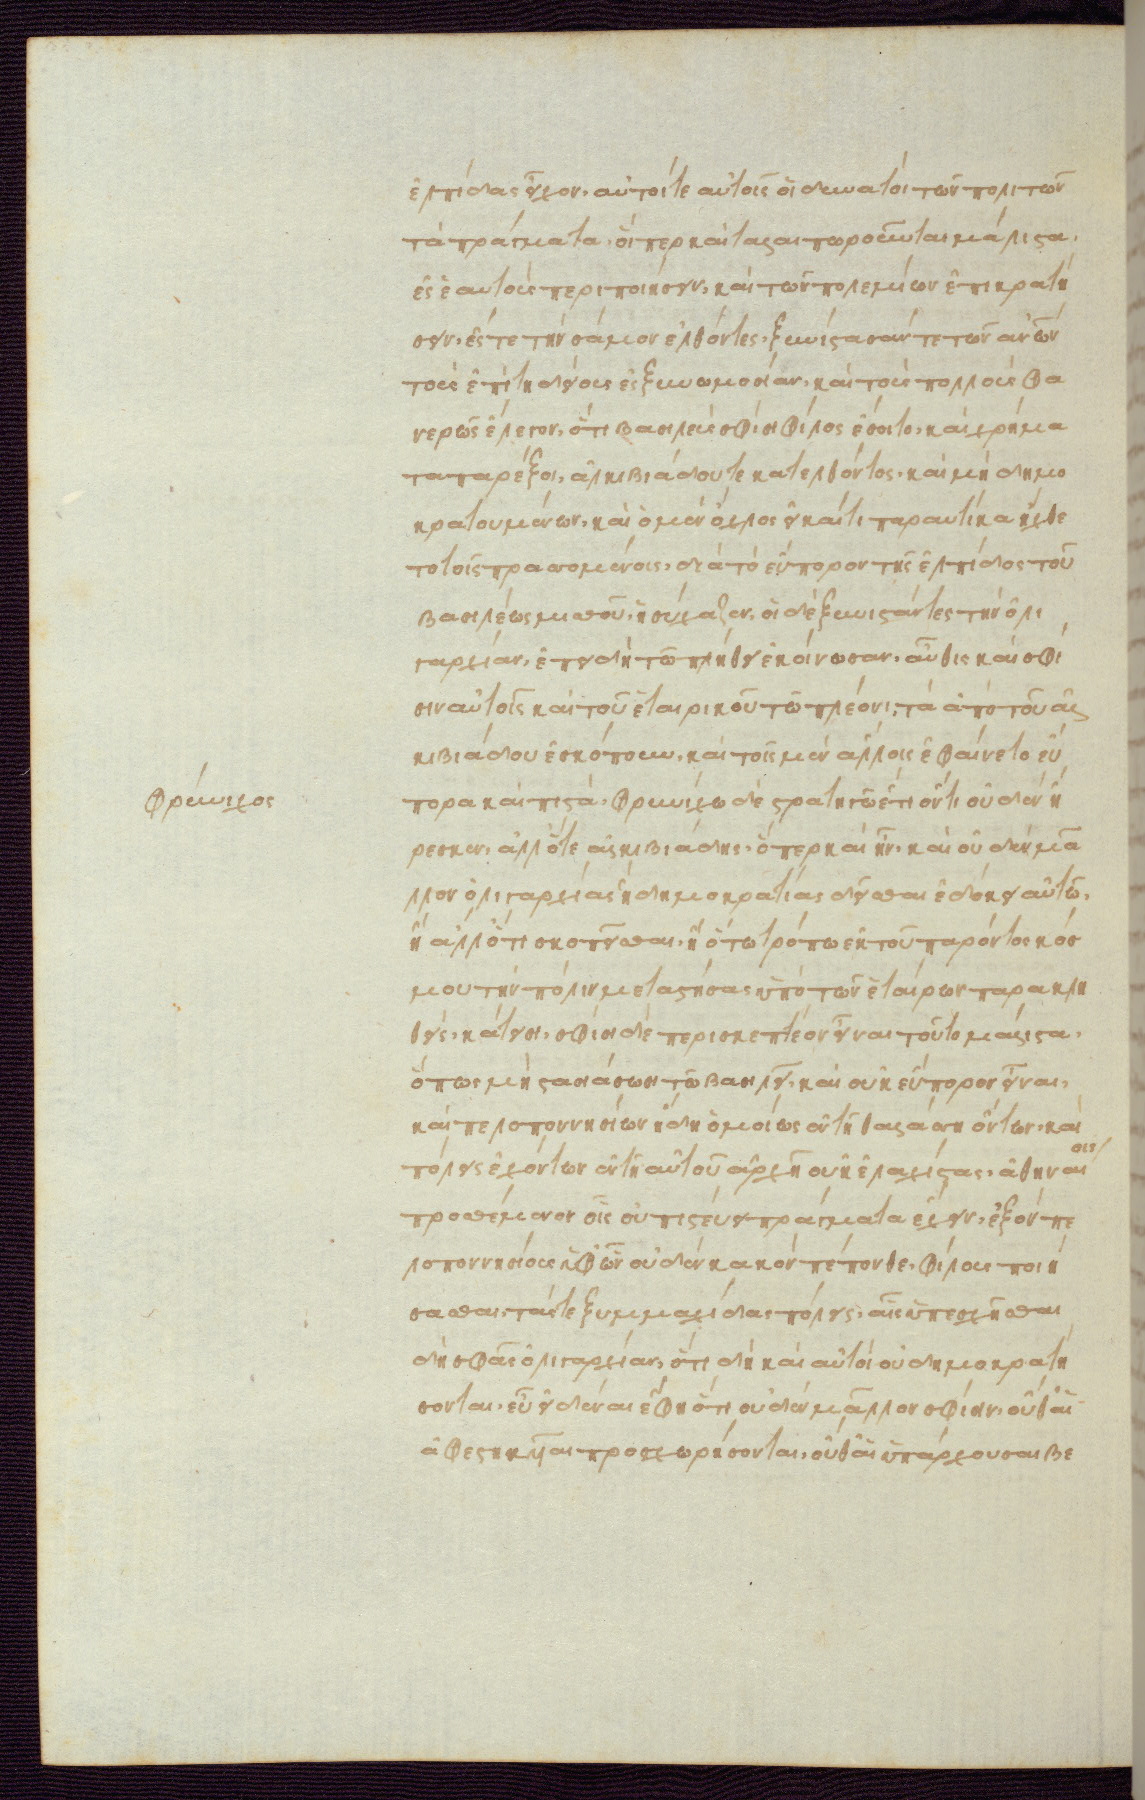 ἐλπίδας εἶχον, αὐτοί τε αὑτοῖς οἱ δυνατοὶ τῶν πολιτῶν
τὰ πράγματα, οἵπερ καὶ ταλαιπωροῦνται μάλιστα,
ἐς ἑαυτοὺς περιποιήσειν, καὶ τῶν πολεμίων ἐπικρατή
σειν, ἔς τε τὴν σάμον ἐλθόντες, ξυνίστασάν τε τῶν ἀνθρώπων
τοὺς ἐπιτηδείους ἐς ξυνωμοσίαν, καὶ τοὺς πολλοὺς φα
νερῶς ἔλεγον, ὅτι βασιλεὺς σφίσι φίλος ἔσοιτο, καὶ χρήμα
τα παρέξοι, ἀλκιβιάδου τε κατελθόντος, καὶ μὴ δημο
κρατουμένων, καὶ ὁ μὲν ὄχλος εἰ καί τι παραυτίκα ἤχθε
το τοῖς πρασσομένοις, διὰ τὸ εὔπορον τῆς ἐλπίδος τοῦ
βασιλέως μισθοῦ, ἡσύχαζεν, οἱ δὲ ξυνιστάντες τὴν ὀλι
γαρχίαν, ἐπειδὴ τῷ πλήθει ἐκοίνωσαν, αὖθις καὶ σφί
σιν αὐτοῖς καὶ τοῦ ἑταιρικοῦ τῷ πλέονι, τὰ ἀπὸ τοῦ ἀλ
κιβιάδου ἐσκόπουν, καὶ τοῖς μὲν ἄλλοις ἐφαίνετο εὔ
φρύνιχος
πορα καὶ πιστά, φρυνίχῳ δὲ στρατηγῷ ἔτι ὄντι οὐδὲν ἤ
ρεσκεν, ἀλλ' ὅτε ἀλκιβιάδης, ὅπερ καὶ ἦν, καὶ οὐδὲν μᾶ
λλον ὀλιγαρχίας ἢ δημοκρατίας δεῖσθαι ἐδόκει αὐτῷ,
ἢ ἄλλό τι σκοπεῖσθαι, ἢ ὅτῳ τρόπῳ ἐκ τοῦ παρόντος κόσ
μου τὴν πόλιν μεταστήσας ὑπὸ τῶν ἑταίρων παρακλη
θεὶς, κάτεισι, σφίσι δὲ περισκεπτέον εἶναι τοῦτο μάλιστα,
ὅπως μὴ στασιάσωσι τῷ βασιλεῖ, καὶ οὐκ εὔπορον εἶναι,
καὶ πελοποννησίων ἤδη ὁμοίως ἐν τῇ θαλάσσῃ ὄντων, καὶ
πόλεις ἐχόντων ἐν τῇ αὐτοῦ ἀρχῇ οὐκ ἐλαχίστας, ἀθηναίοις
προσθέμενον οἷς οὐ πιστεύει πράγματα ἔχειν, ἐξὸν πε
λοποννησίους ὑφ' ὧν οὐδὲν κακὸν πέπονθε, φίλους ποιή
σασθαι, τάς τε ξυμμαχίδας πόλεις, αἷς ὑπεσχῆσθαι
δὴ σφᾶς ὀλιγαρχίαν, ὅτι δὴ καὶ αὐτοὶ οὐ δημοκρατή
σονται, εὖ εἰδέναι ἔφη ὅτι οὐδὲν μᾶλλον σφίσιν, οὔθ' αἱ
ἀφεστηκυῖαι προσχωρήσονται, οὔθ' αἱ ὑπάρχουσαι βε